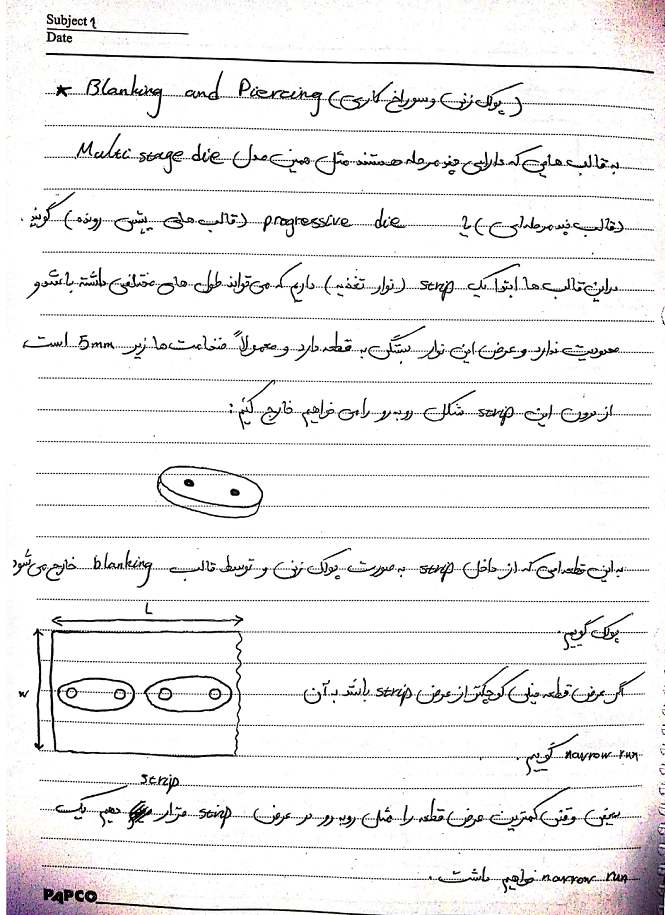 Subject 1
Date
* Blanking and Piercing (پولک زنی و سوراخ کاری)
به قالب هایی که دارای چند مرحله هستند مثل همین مدل Multi stage die
(قالب چند مرحله ای) یا progressive die (قالب های پیش رونده) گویند.
در این قالب ها ابتدا یک strip (نوار تغذیه) داریم که می تواند طول های مختلفی داشته باشد و
محدودیت ندارد و عرض این نوار بستگی به قطعه دارد و معمولاً ضخامت ها زیر 5mm است
از درون این strip شکل روبه رو را می خواهیم خارج کنیم:
به این قطعه ای که از داخل strip به صورت پولک زنی و توسط قالب blanking خارج می شود
پولک گوییم.
L
w
strip
اگر عرض قطعه خیلی کوچکتر از عرض strip باشد به آن
narrow run گوییم.
یعنی وقتی کمترین عرض قطعه را مثل روبه رو در عرض strip قرار دهیم یک
narrow run خواهیم داشت.
PAPCO